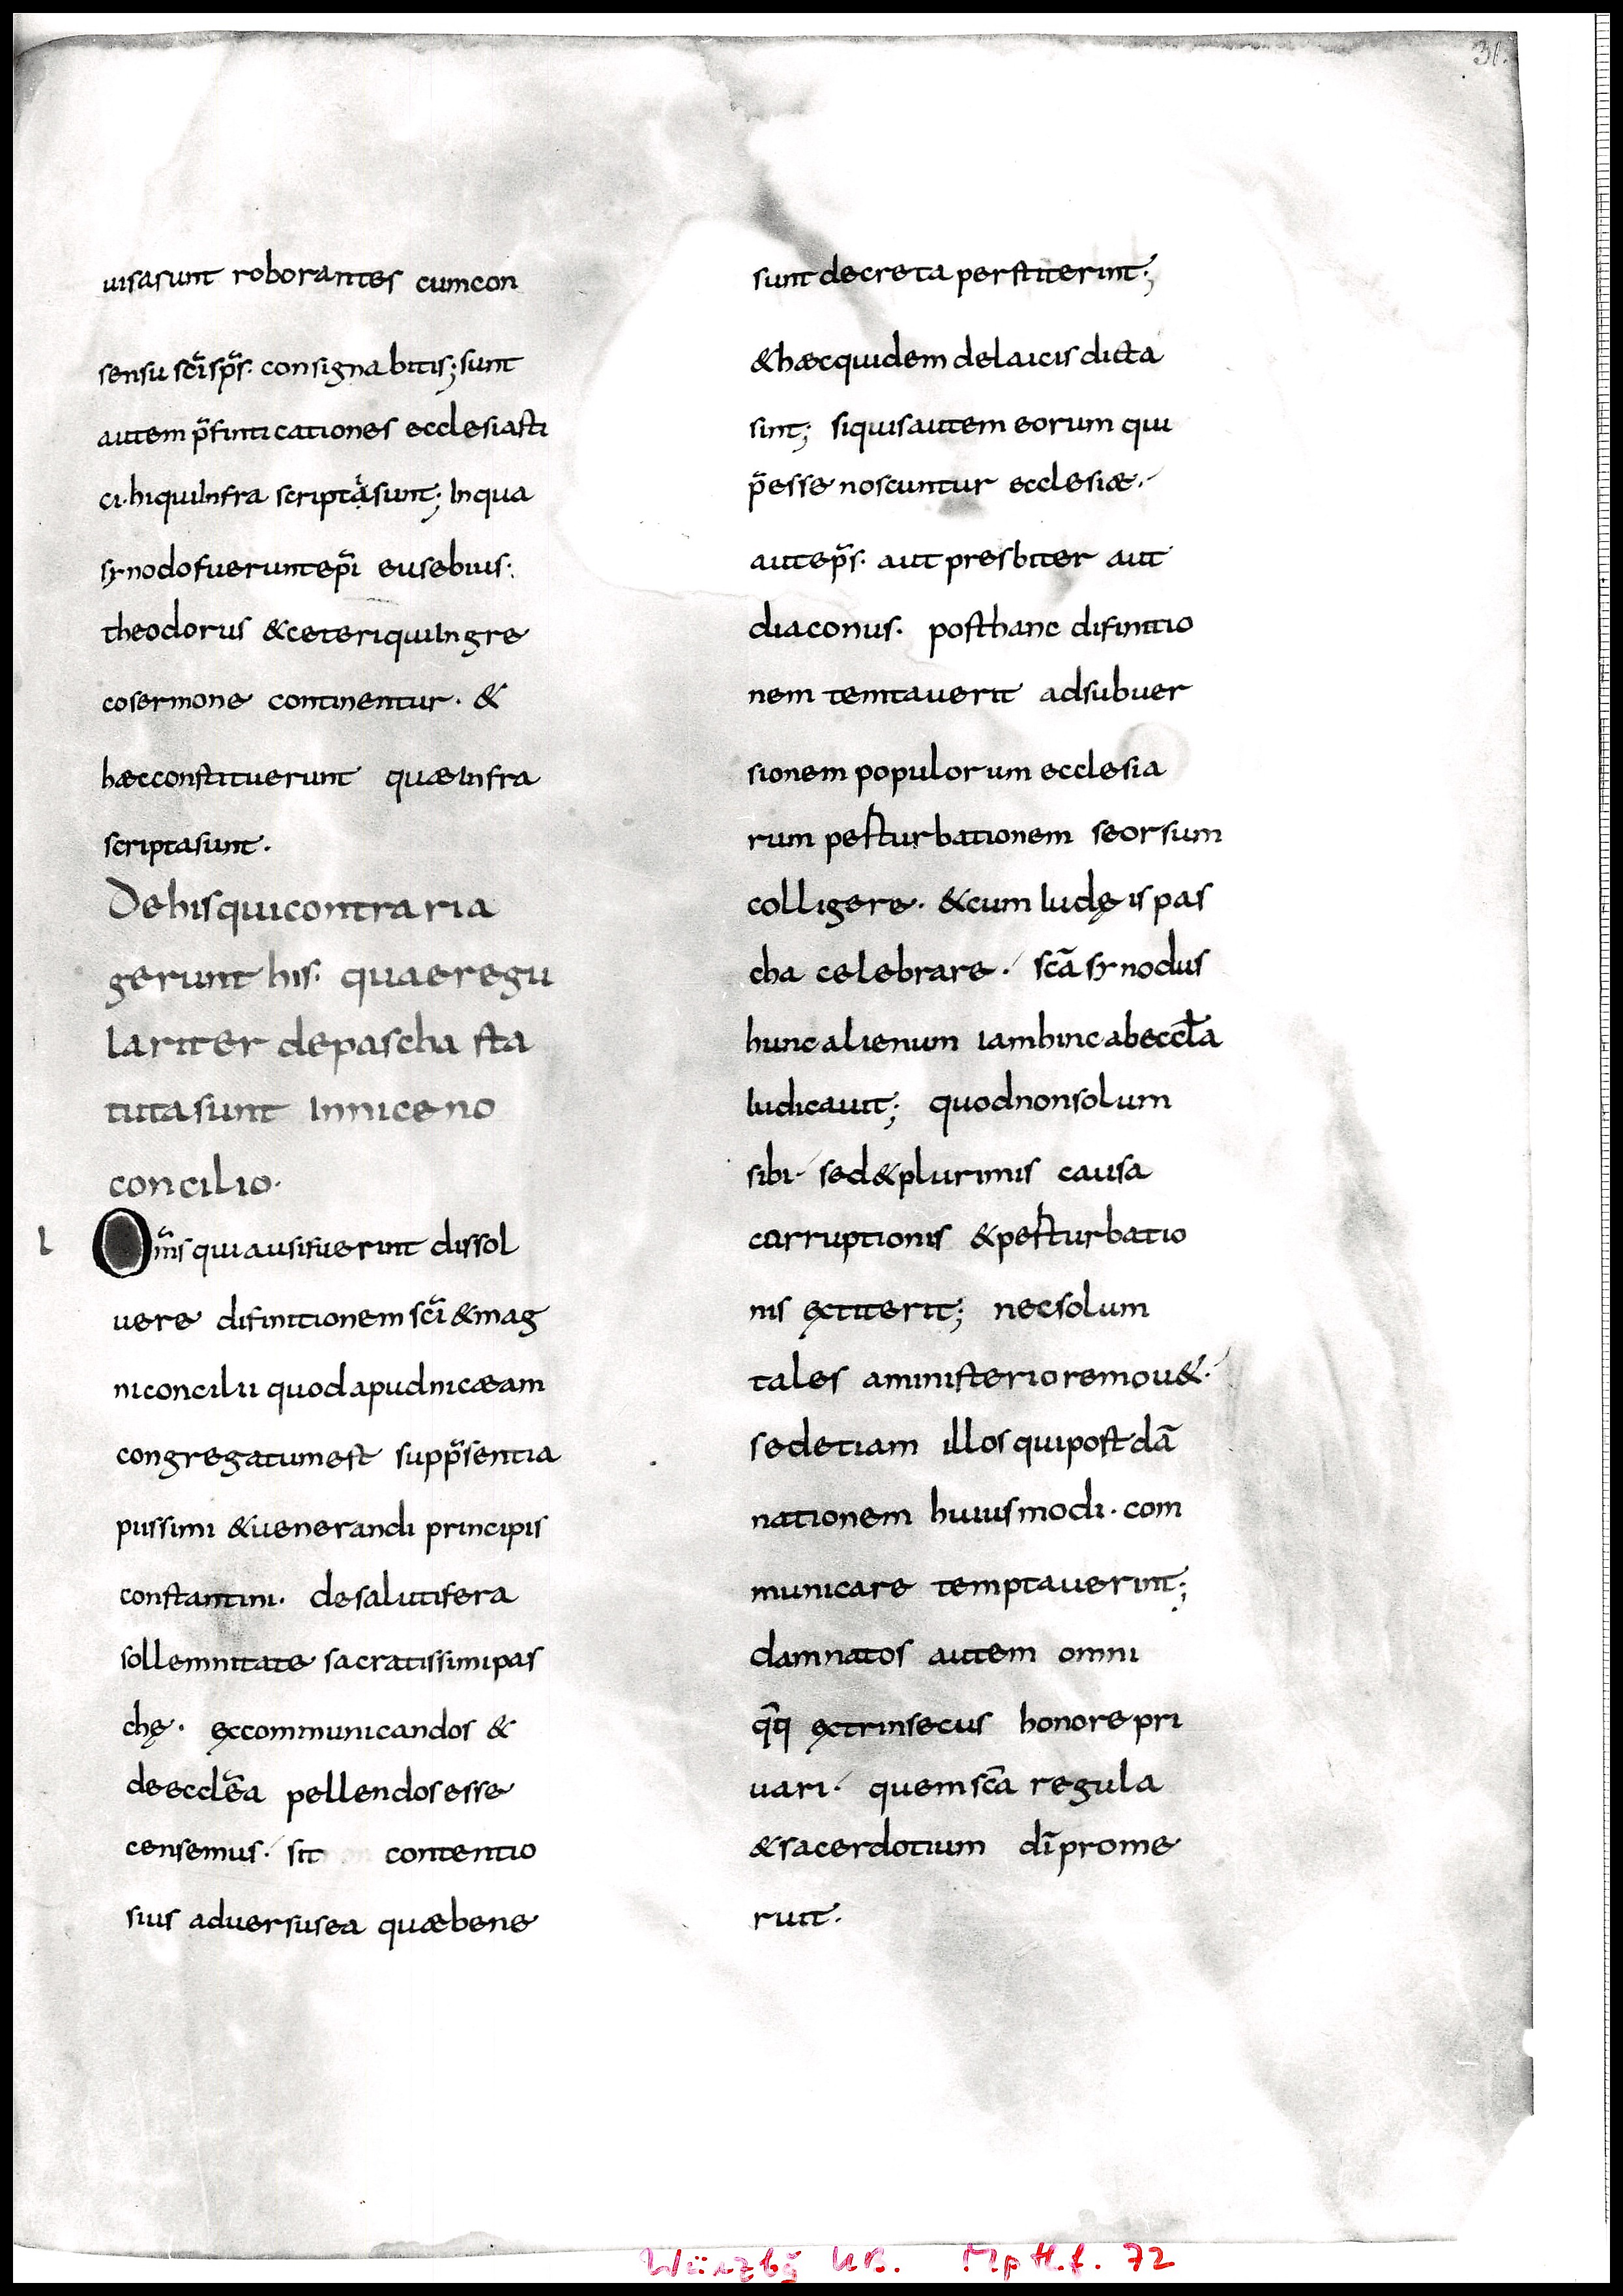 31.
uisasunt roborantes cumcon
sensu sc̃i sp̃s· consignabitis; sunt
autem p̃finticationes ecclesiasti
ci·hiquiInfra scriptasunt; Inqua
synodofuerunt ep̃i eusebius·
theodorus &ceteriquiIngre
cosermone continentur· &
hæcconstituerunt quæInfra
scriptasunt·
Dehisquicontraria
gerunt his· quaeregu
lariter depascha sta
tutasunt Inniceno
concilio·
I
Om̃s quiausifuerint dissol
uere difinitionem sc̃i &mag
niconcilii quodapudnicæam
congregatumest supp̃sentia
piissimi &uenerandi principis
constantini· desalutifera
sollemnitate sacratissimipas
chę· excommunicandos &
deeccl̃ea pellendosesse
censemus· sit contentio
sius aduersusea quæbene
suntdecreta perstiterint;
&hæcquidem delaicis dicta
sint; siquisautem eorum qui
p̃esse noscuntur ecclesiæ·
autep̃s· aut presbiter aut
diaconus· posthanc difinitio
nem temtauerit adsubuer
sionem populorum ecclesia
rum pesturbationem seorsum
colligere· &cum Iudęis pas
cha celebrare· sc̃a synodus
huncalienum iamhincabeccl̃a
Iudicauit; quodnonsolum
sibi· sed&plurimis causa
corruptionis &pesturbatio
nis extiterit; necsolum
tales aministerioremou&·
sedetiam illos quipost dã
nationem huiusmodi· com
municare temptauerint;
damnatos autem omni
q̃q extrinsecus honorepri
uari· quemsc̃a regula
&sacerdotium dĩprome
ruit·
Würzbg UB. Mp th. f. 72